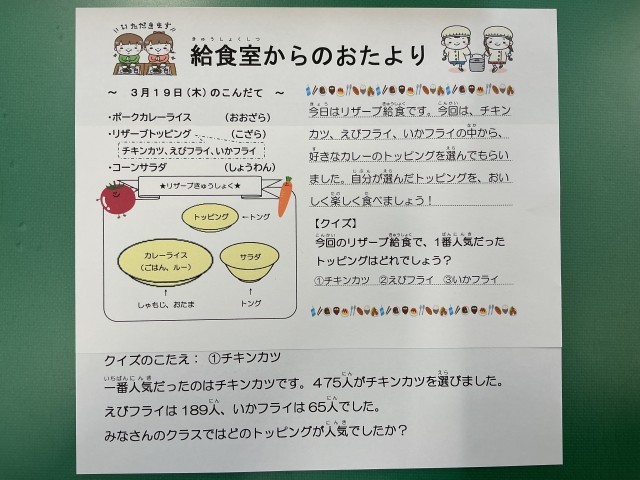 いただきます
給食室からのおたより
～ 3月19日(木)のこんだて ～
・ポークカレーライス (おおざら)
・リザーブトッピング (こざら)
チキンカツ、えびフライ、いかフライ
・コーンサラダ (しょうわん)
★リザーブきゅうしょく★
トッピング ←トング
カレーライス
(ごはん、ルー)
サラダ
↑
しゃもじ、おたま
↑
トング
今日はリザーブ給食です。今回は、チキン
カツ、えびフライ、いかフライの中から、
好きなカレーのトッピングを選んでもらい
ました。自分が選んだトッピングを、おい
しく楽しく食べましょう！
【クイズ】
今回のリザーブ給食で、1番人気だった
トッピングはどれでしょう？
①チキンカツ ②えびフライ ③いかフライ
クイズのこたえ： ①チキンカツ
一番人気だったのはチキンカツです。475人がチキンカツを選びました。
えびフライは189人、いかフライは65人でした。
みなさんのクラスではどのトッピングが人気でしたか？